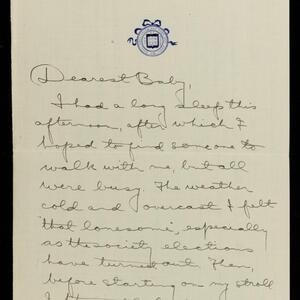 Dearest Baby,
I had a long sleep this
afternoon, after which I
hoped to find someone to
walk with me, but all
were busy. The weather
cold and overcast I felt
that lonesome, especially
as the society elections
have turned out. Then,
before starting on my stroll